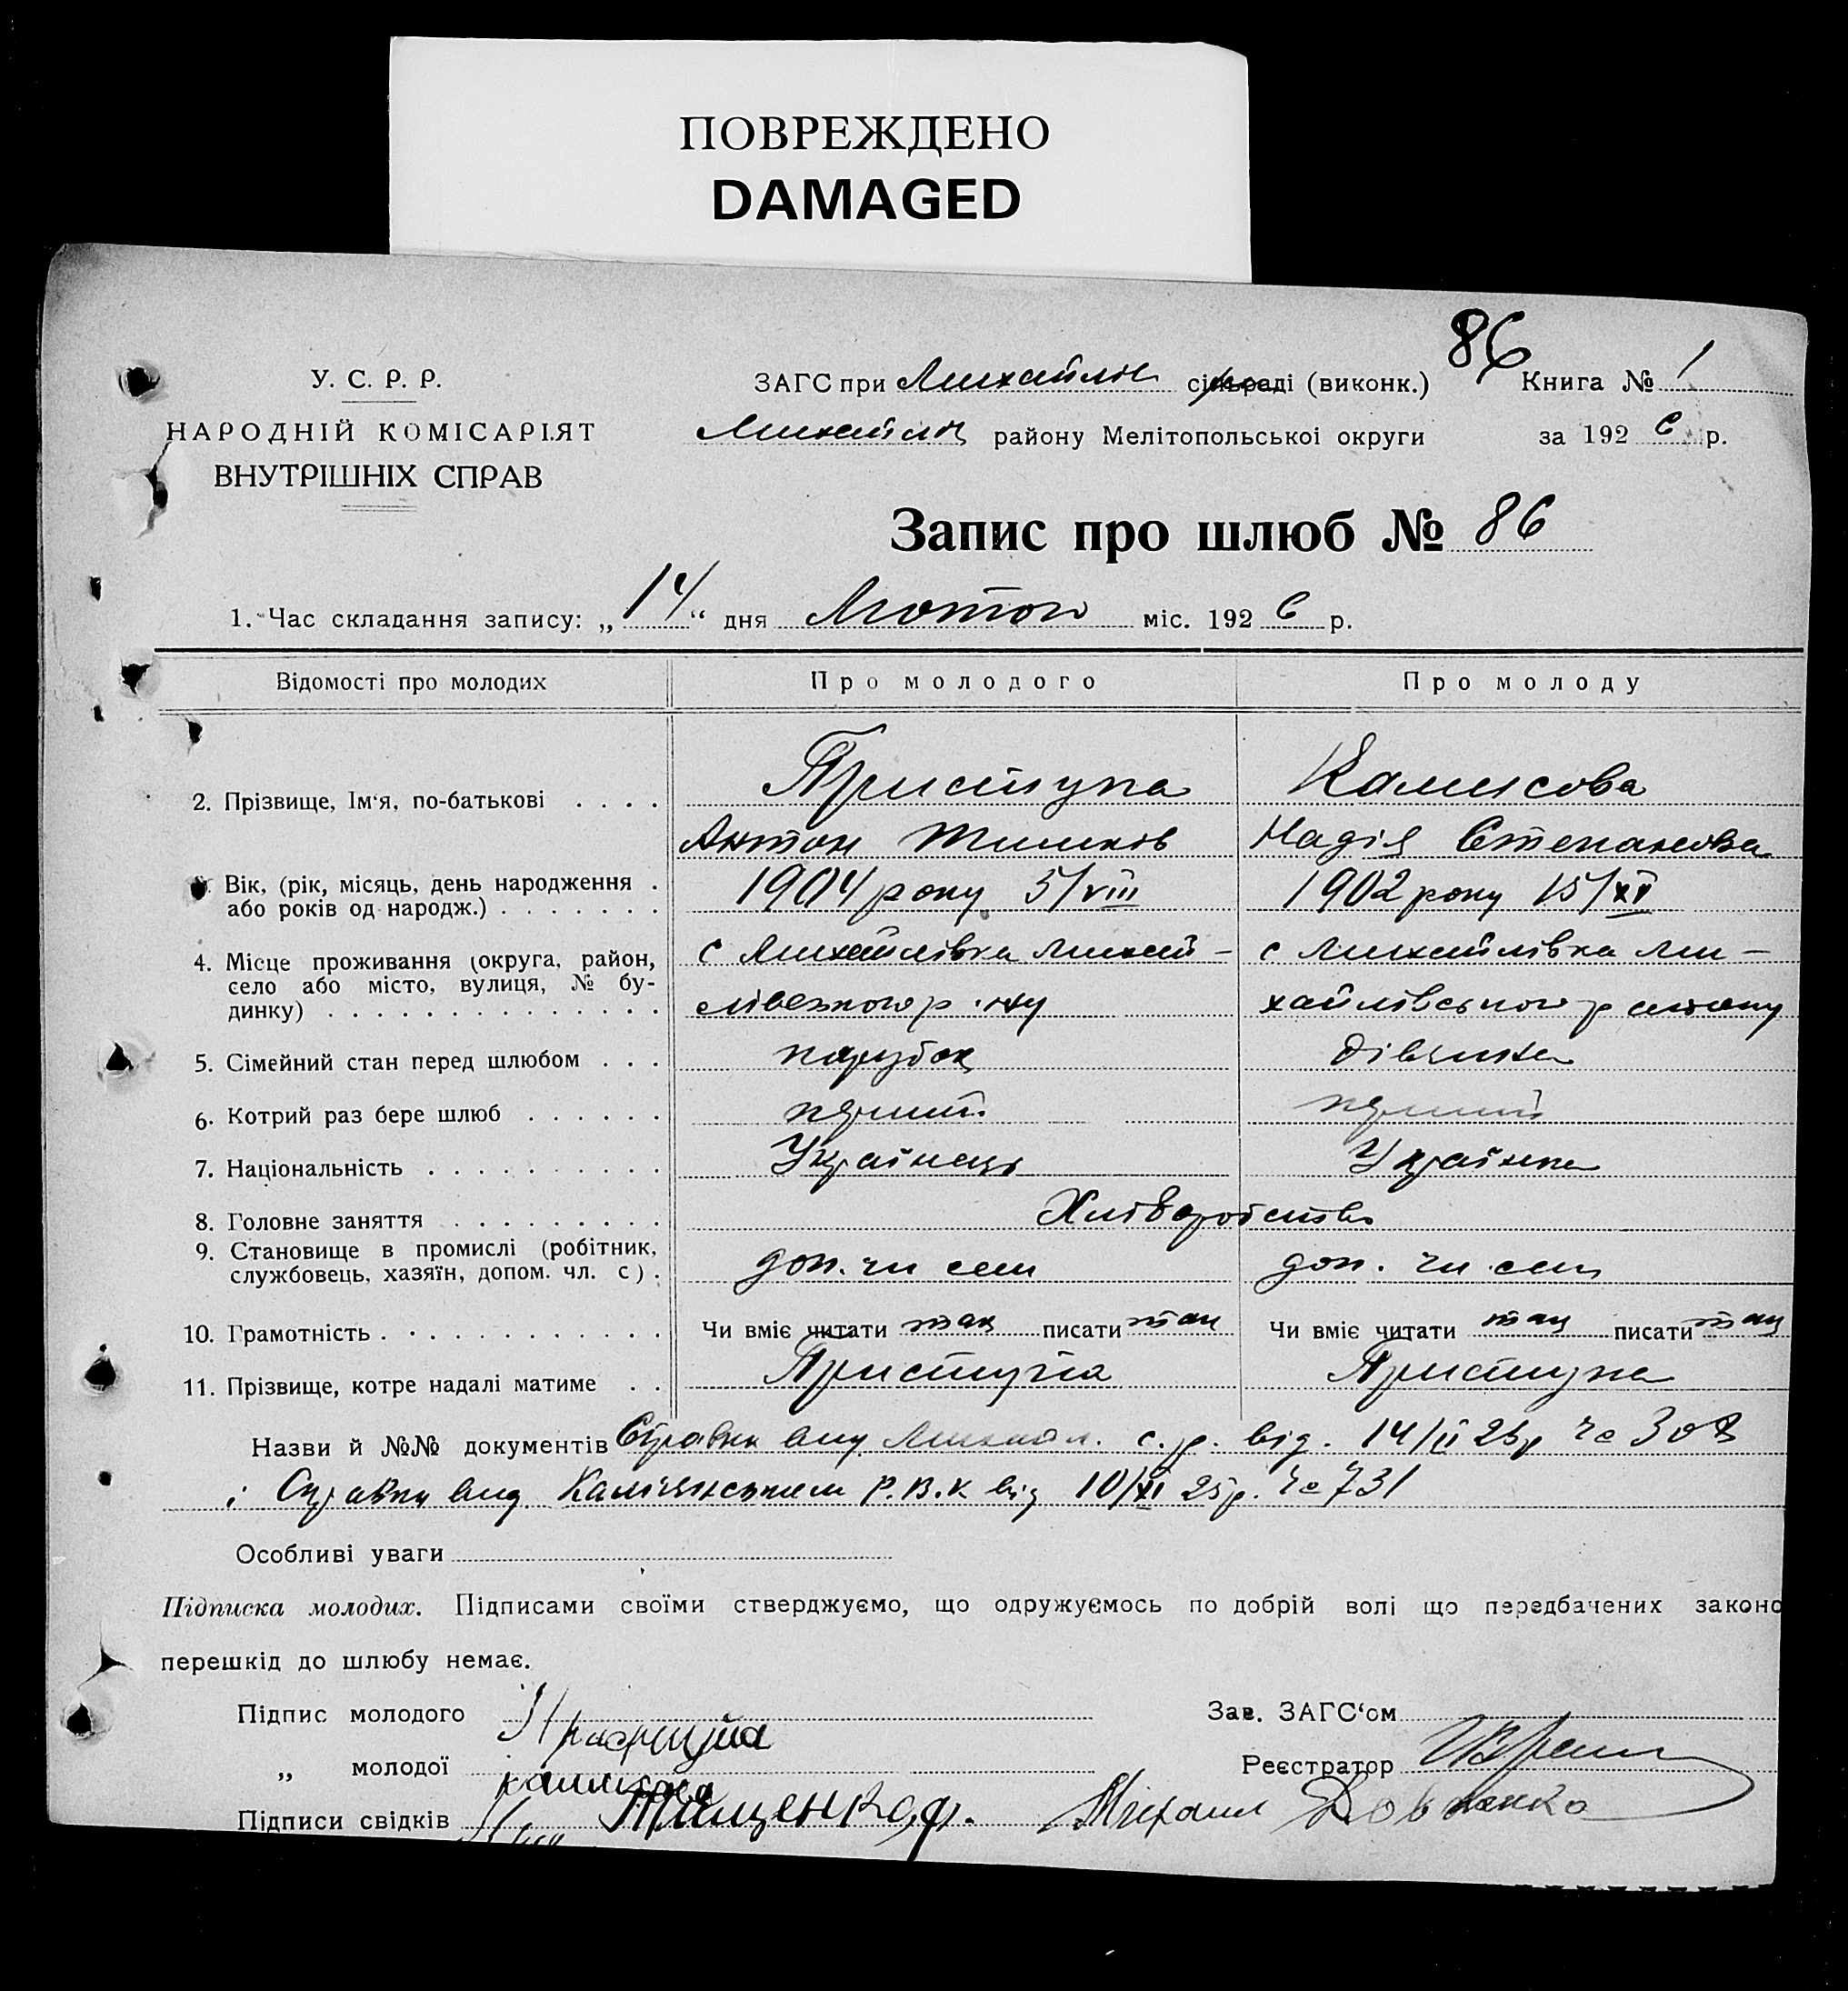 ПОВРЕЖДЕНО
DAMAGED
86
У. С. Р. Р.
НАРОДНІЙ КОМІСАРІЯТ
ВНУТРІШНІХ СПРАВ
ЗАГС при Михайлів сільраді (виконк.) Книга № 1
Михайлів району Мелітопольської округи за 1926 р.
Запис про шлюб № 86
1. Час складання запису: „14“ дня Лютого міс. 1926 р.
Відомості про молодих Про молодого Про молоду
2. Прізвище, Ім'я, по-батькові . . . . Приступа Камисова
Антон Тимків Надія Степанова
Вік, (рік, місяць, день народження . 1904 року 5/VIII 1902 року 15/XI
або років од народж.) . . . . . . .
4. Місце проживання (округа, район, с Михайлівка Михай- с Михайлівка Ми-
село або місто, вулиця, № бу-
динку) . . . . . . . . . . . . . . лівського р-ну хайлівського району
5. Сімейний стан перед шлюбом . . . парубок дівчина
6. Котрий раз бере шлюб . . . . . . перший перший
7. Національність . . . . . . . . . . Українець Українка
8. Головне заняття . . . . . . . . . Хліборобство
9. Становище в промислі (робітник,
службовець, хазяїн, допом. чл. с) . доп. чл сем доп. чл сем
10. Грамотність . . . . . . . . . . . . Чи вміє читати так писати так Чи вміє читати так писати так
11. Прізвище, котре надалі матиме . . Приступа Приступа
Назви й №№ документів Справки вид Михайл. с. р. від. 14/II 26р №
і Справки вид Р.В.К від 10/XI 25р. № 731
Особливі уваги
Підписка молодих. Підписами своїми стверджуємо, що одружуємось по добрій волі що передбачених законо
перешкід до шлюбу немає.
Підпис молодого Зав. ЗАГС'ом
„ молодої Реєстратор
Підписи свідків Тищенко Михаил Довженко